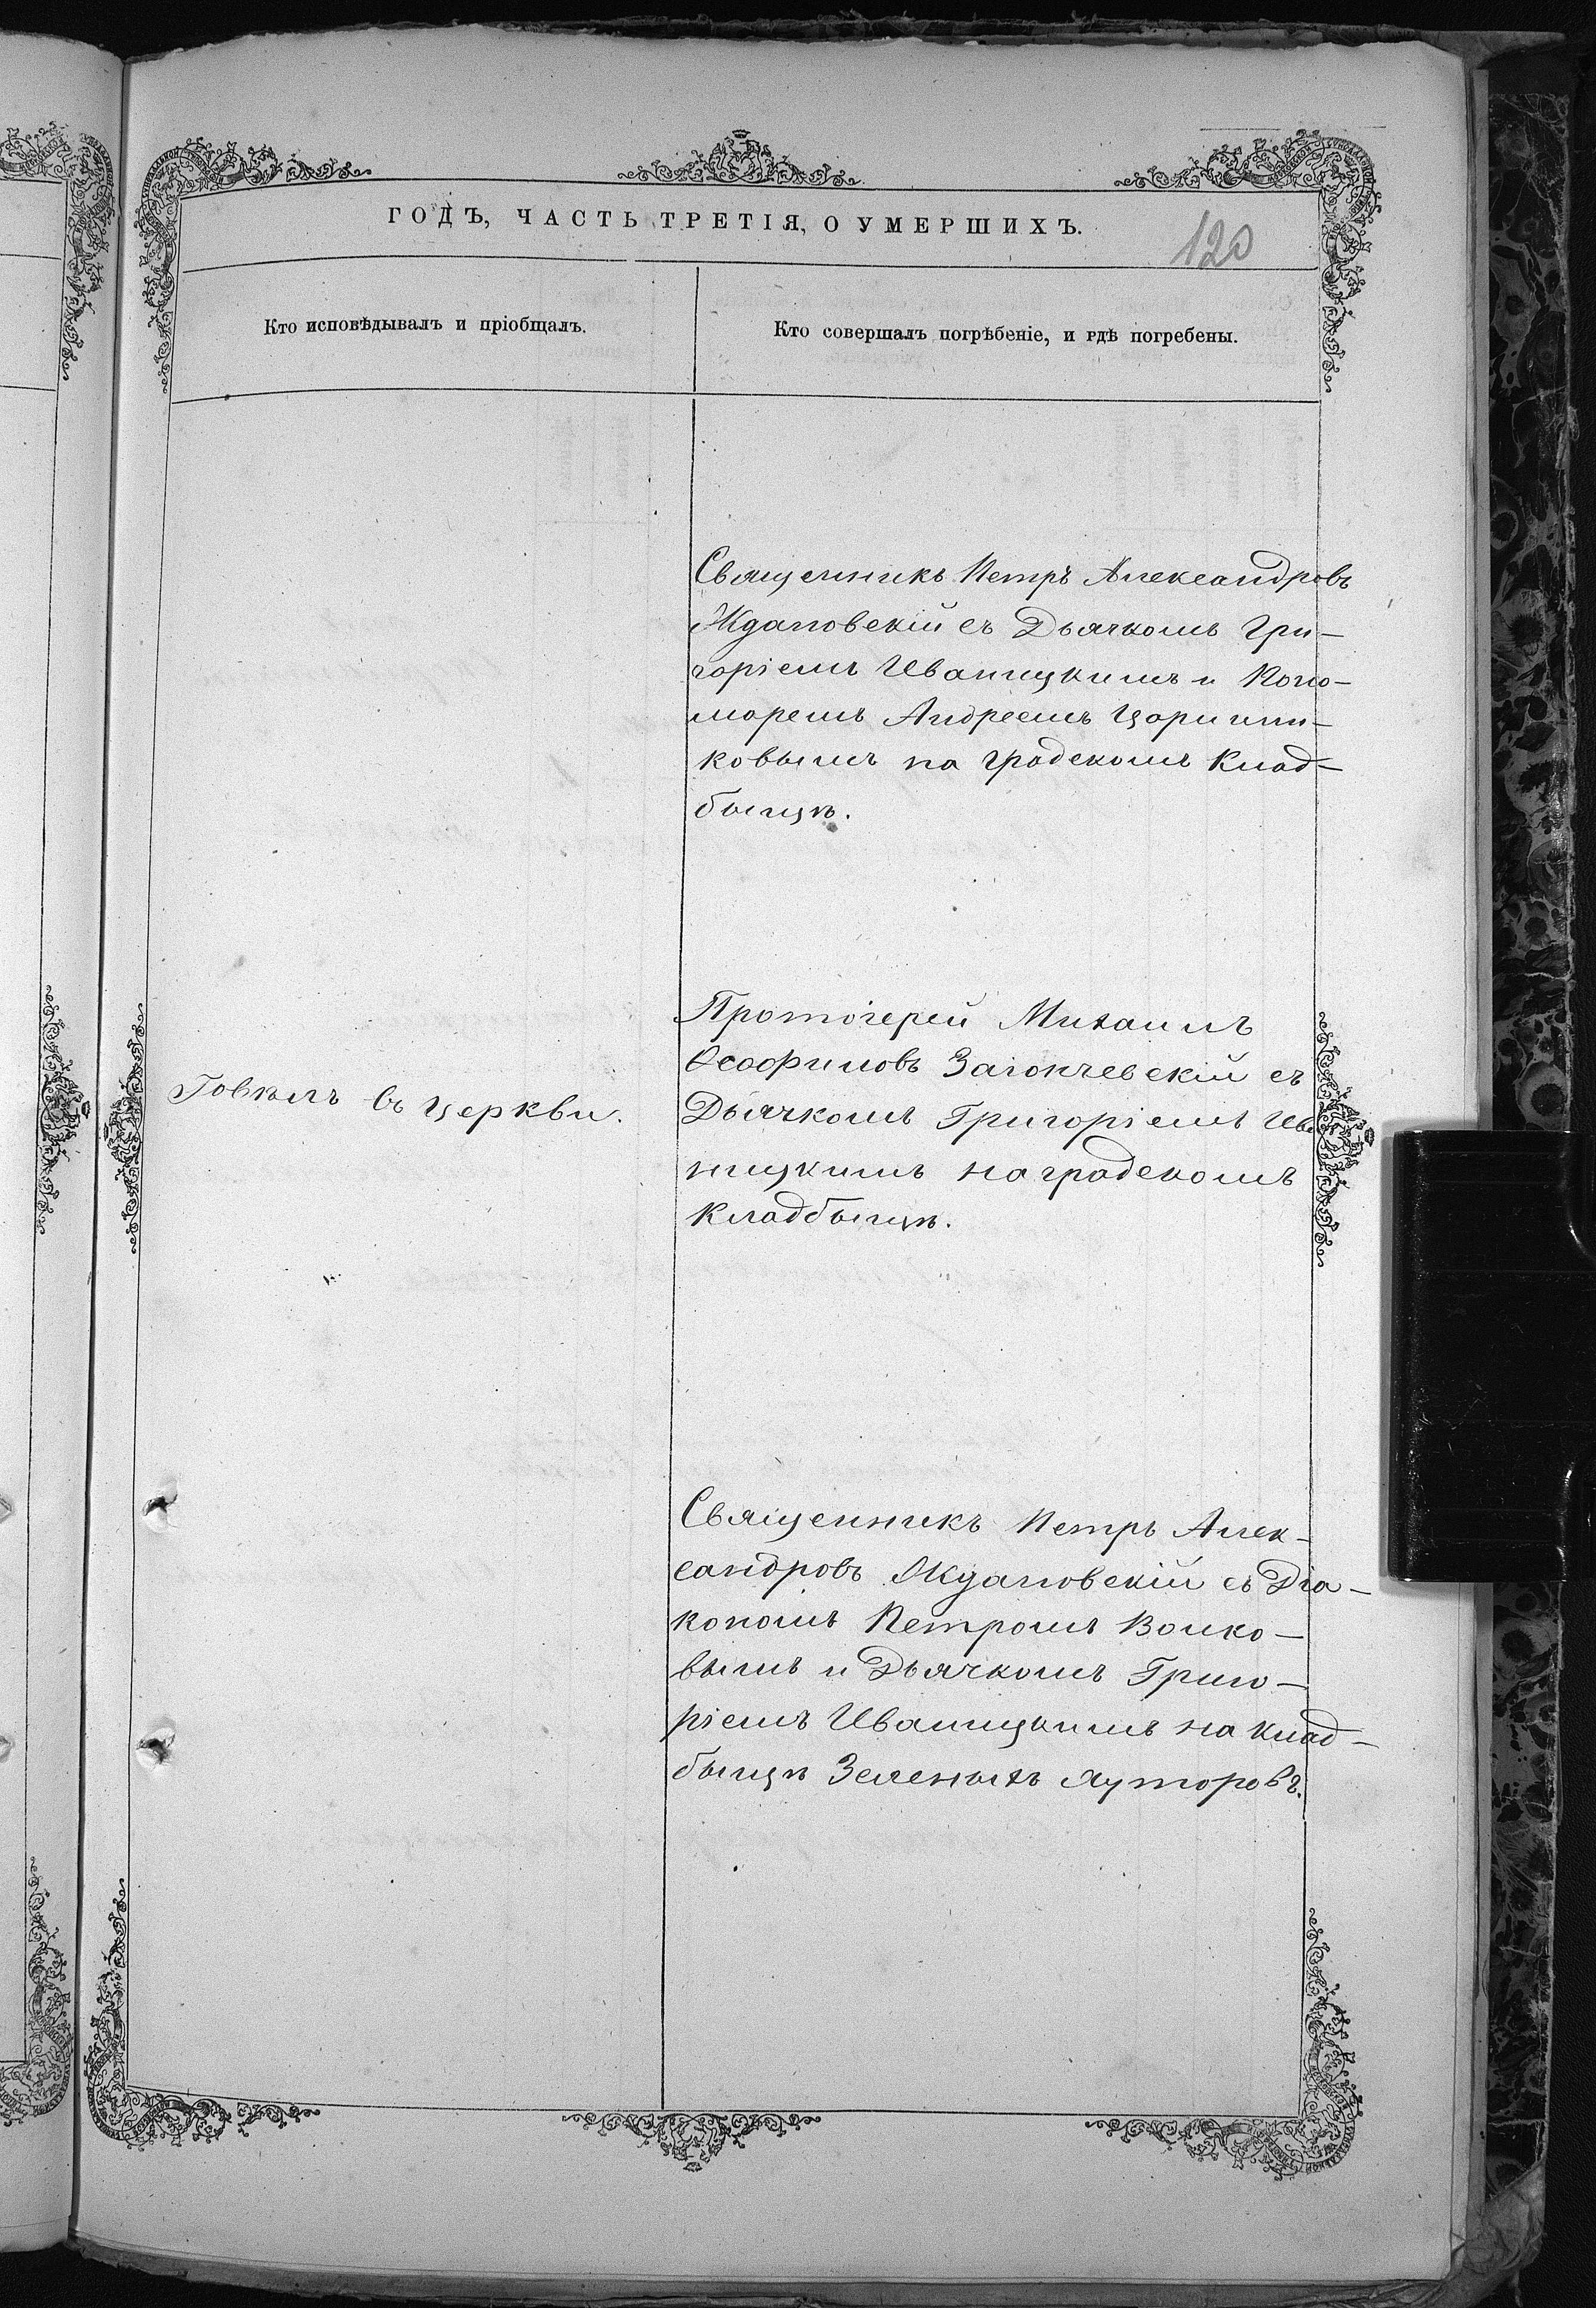 ГОДЪ, ЧАСТЬ ТРЕТІЯ, О УМЕРШИХЪ.
120
Кто исповѣдывалъ и пріобщалъ.
Кто совершалъ погрѣбеніе, и гдѣ погребены.
Священникъ Петръ Александровъ
Ждановскій съ Дьячкомъ Гри-
горіемъ Иваницкимъ и Поно-
маремъ Андреемъ
ковымъ на градскомъ Клад-
бищѣ.
Протоіерей Михаилъ
Ѳеофиловъ съ
Дьячкомъ Григоріемъ Ива
ницкимъ на градскомъ
Кладбищѣ.
Говѣлъ въ церкви.
Священникъ Петръ Алек-
сандровъ Ждановскій съ Діа-
кономъ Петромъ Волко-
вымъ и Дьячкомъ Григо-
ріемъ Иваницкимъ на Клад-
бищѣ Зеленыхъ хуторовъ.